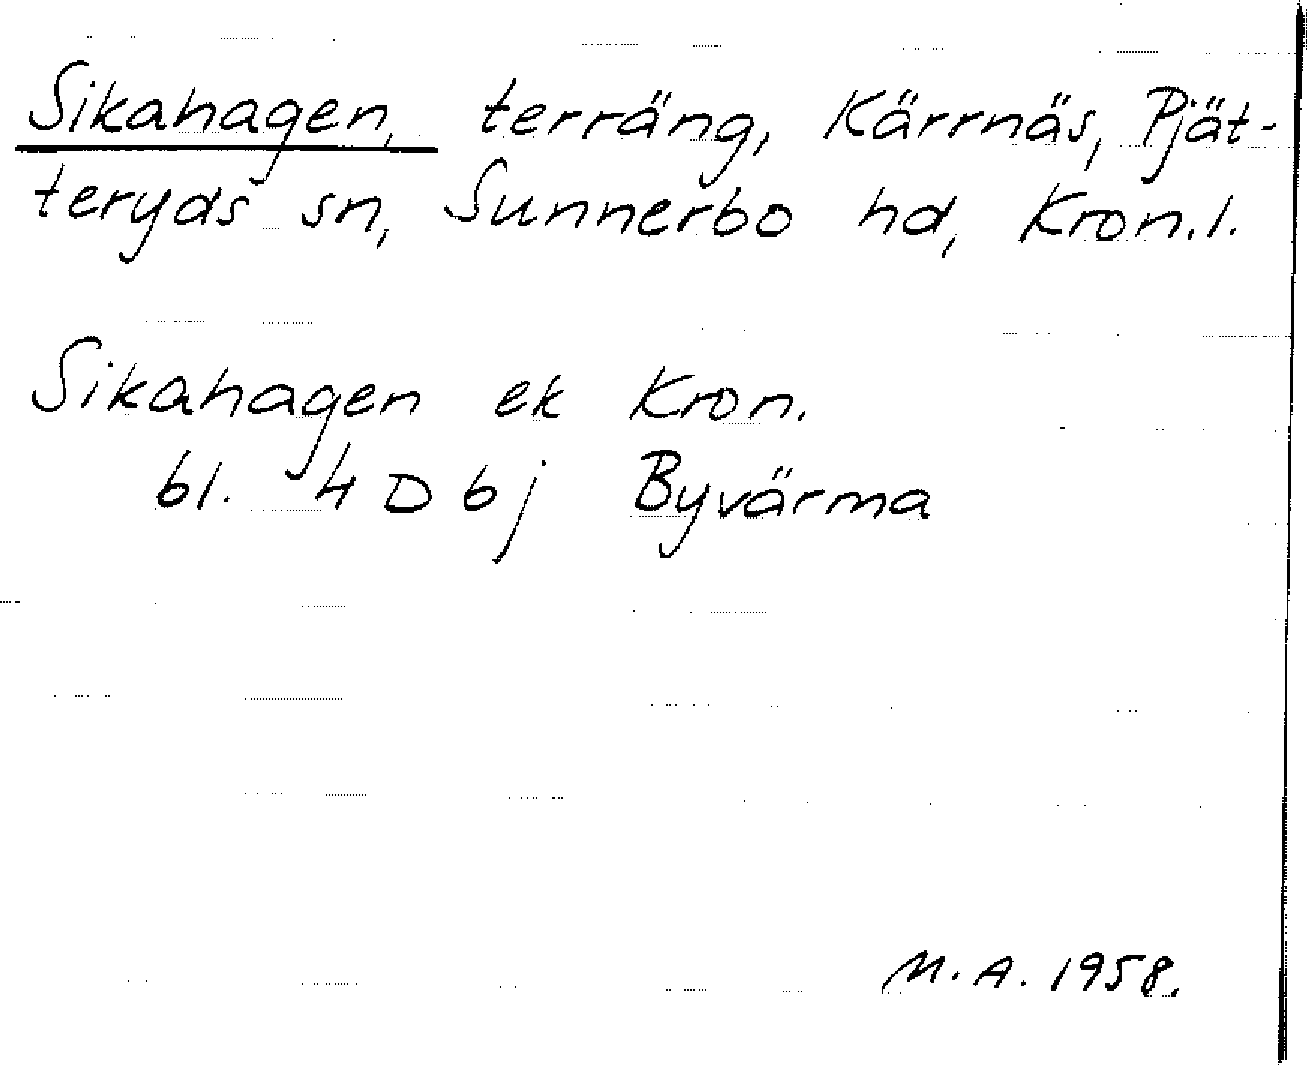 Sikahagen, terräng, Kärrnäs, Pjät-
teryds sn, Sunnerbo hd, Kron.l.
Sikahagen ek Kron.
bl. 4 D 6 j Byvärma
M.A. 1958.